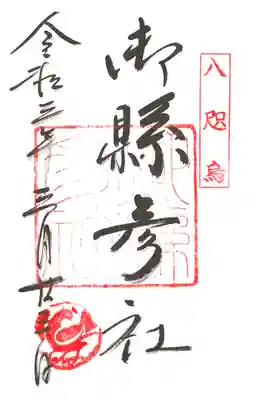 八咫烏
御縣彦社
令和三年三月廿日